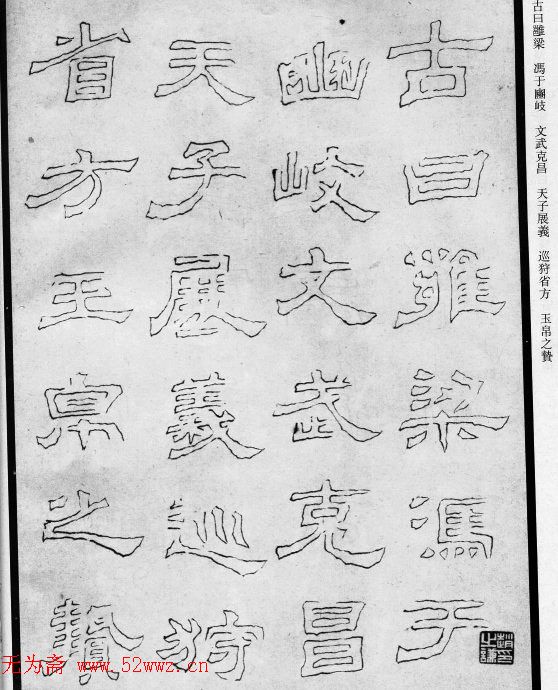 古曰雝梁 馮于豳岐 文武克昌 天子展義 巡狩省方 玉帛之贄
古曰雝梁馮于
豳岐文武克昌
天子展義巡狩
省方玉帛之贄
趙之謙印
无为斋 www.52wwz.cn